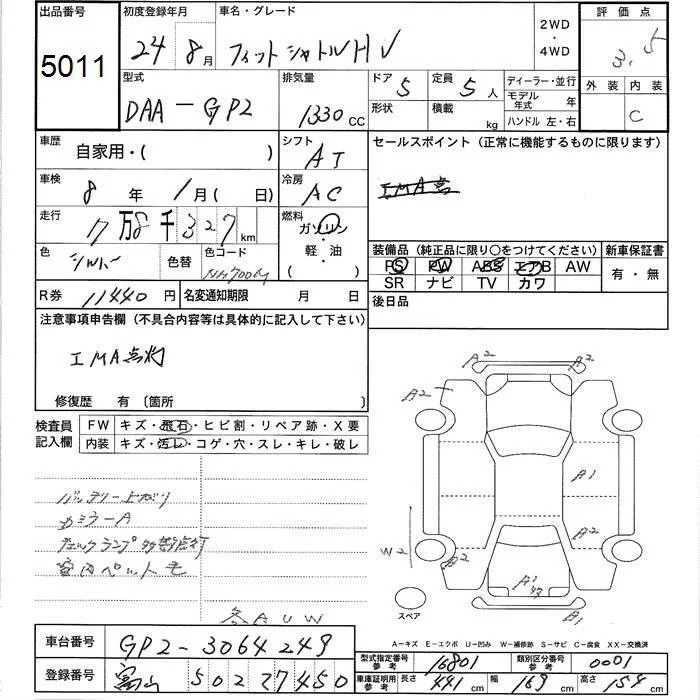 出品番号 5011
初度登録年月 24年 8月
車名・グレード フィットシャトルHV
2WD ・ 4WD
評価点 3.5
型式 DAA-GP2
排気量 1330 CC
ドア 5
形状
定員 5人
積載 kg
ディーラー・並行
モデル年式 年
ハンドル 左・右
外装 内装 C
車歴 自家用・( )
シフト AT
セールスポイント (正常に機能するものに限ります)
車検 8年 1月 ( 日)
冷房 AC
走行 7万8千327km
燃料 ガソリン・軽・油 ( )
色 シルバー
色替
色コード NH700M
装備品 (純正品に限り〇をつけてください)
PS PW ABS エアB AW
SR ナビ TV カワ
新車保証書 有・無
R券 11440円
名変通知期限 月 日
後日品
注意事項申告欄 (不具合内容等は具体的に記入して下さい)
IMA点灯
修復歴 有 〔箇所 〕
検査員記入欄
FW キズ・飛石・ヒビ割・リペア跡・X要
内装 キズ・汚レ・コゲ・穴・スレ・キレ・破レ
バッテリー上がり
カミラーA
チェックランプ多数点灯
室内ペット毛
各AUW
A2 A2
A2
A1
W2 A2
A2
A1
B1
スペア
A-キズ E-エクボ U-凹み W-補修跡 S-サビ C-腐食 XX-交換済
車台番号 GP2-3064249
登録番号 富山 502 27450
型式指定番号参考 16801
類別区分番号参考 0001
車庫証明用参考 長さ 441cm 幅 169cm 高さ 154cm